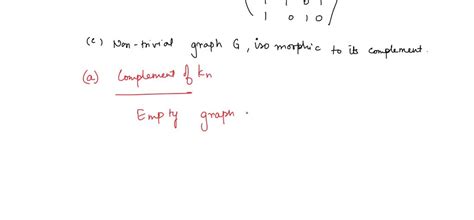 1 0 1 0
(c) Non-trivial graph G, isomorphic to its complement.
(a) Complement of Kn
Empty graph.